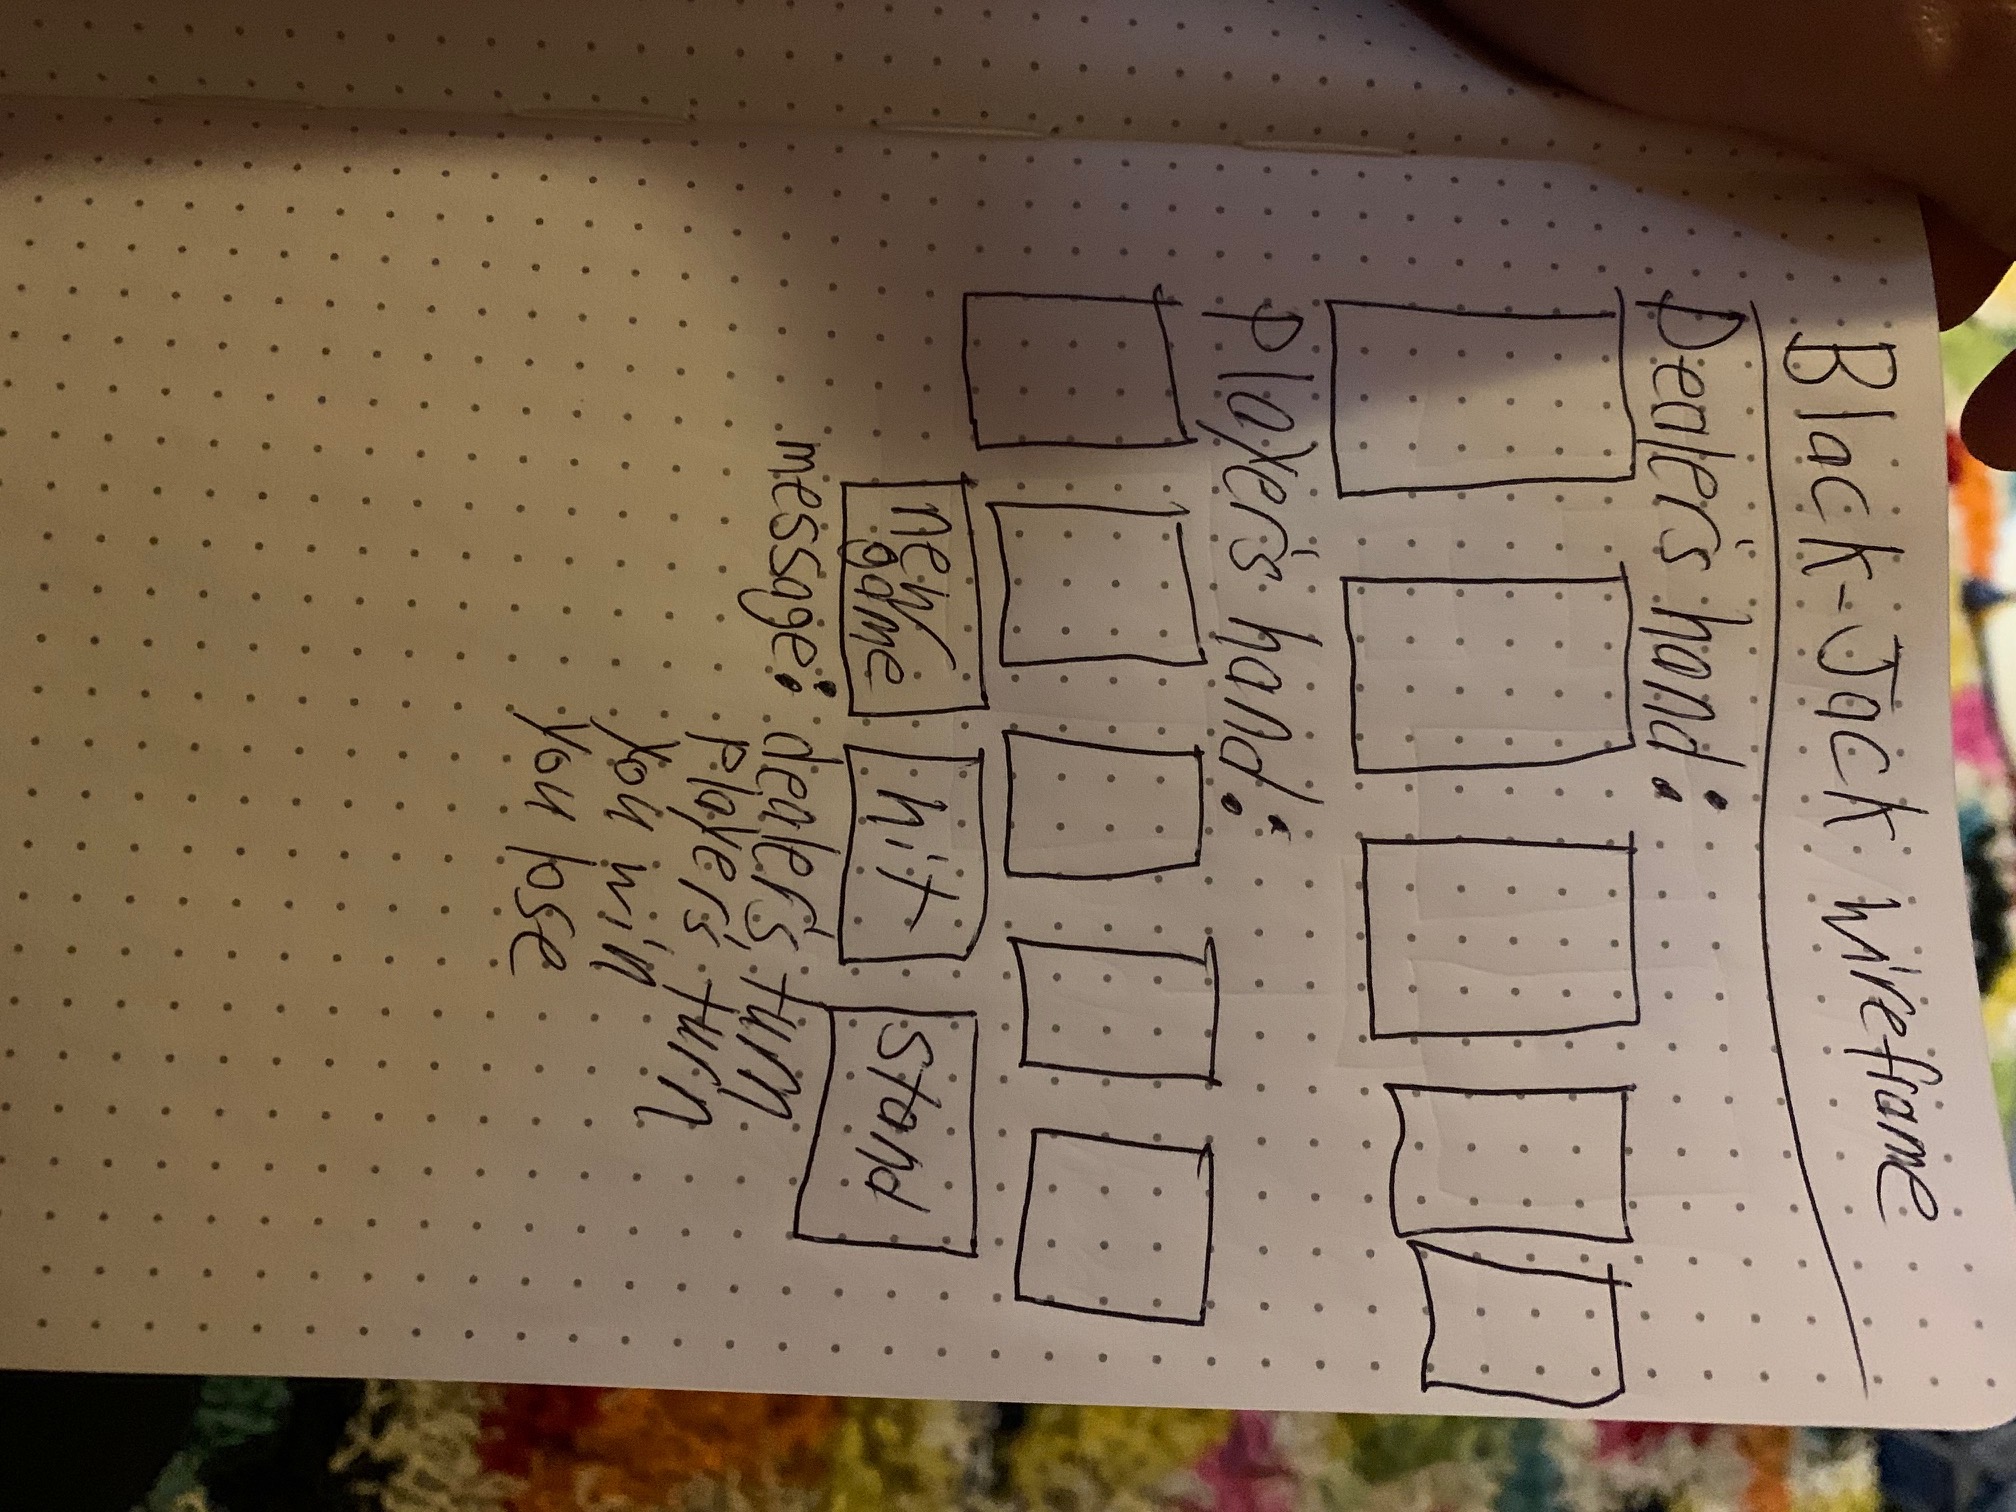 Black-Jack wireframe
Dealer's hand:
Player's hand:
new
game
hit
stand
message: dealer's turn
player's turn
you win
you lose